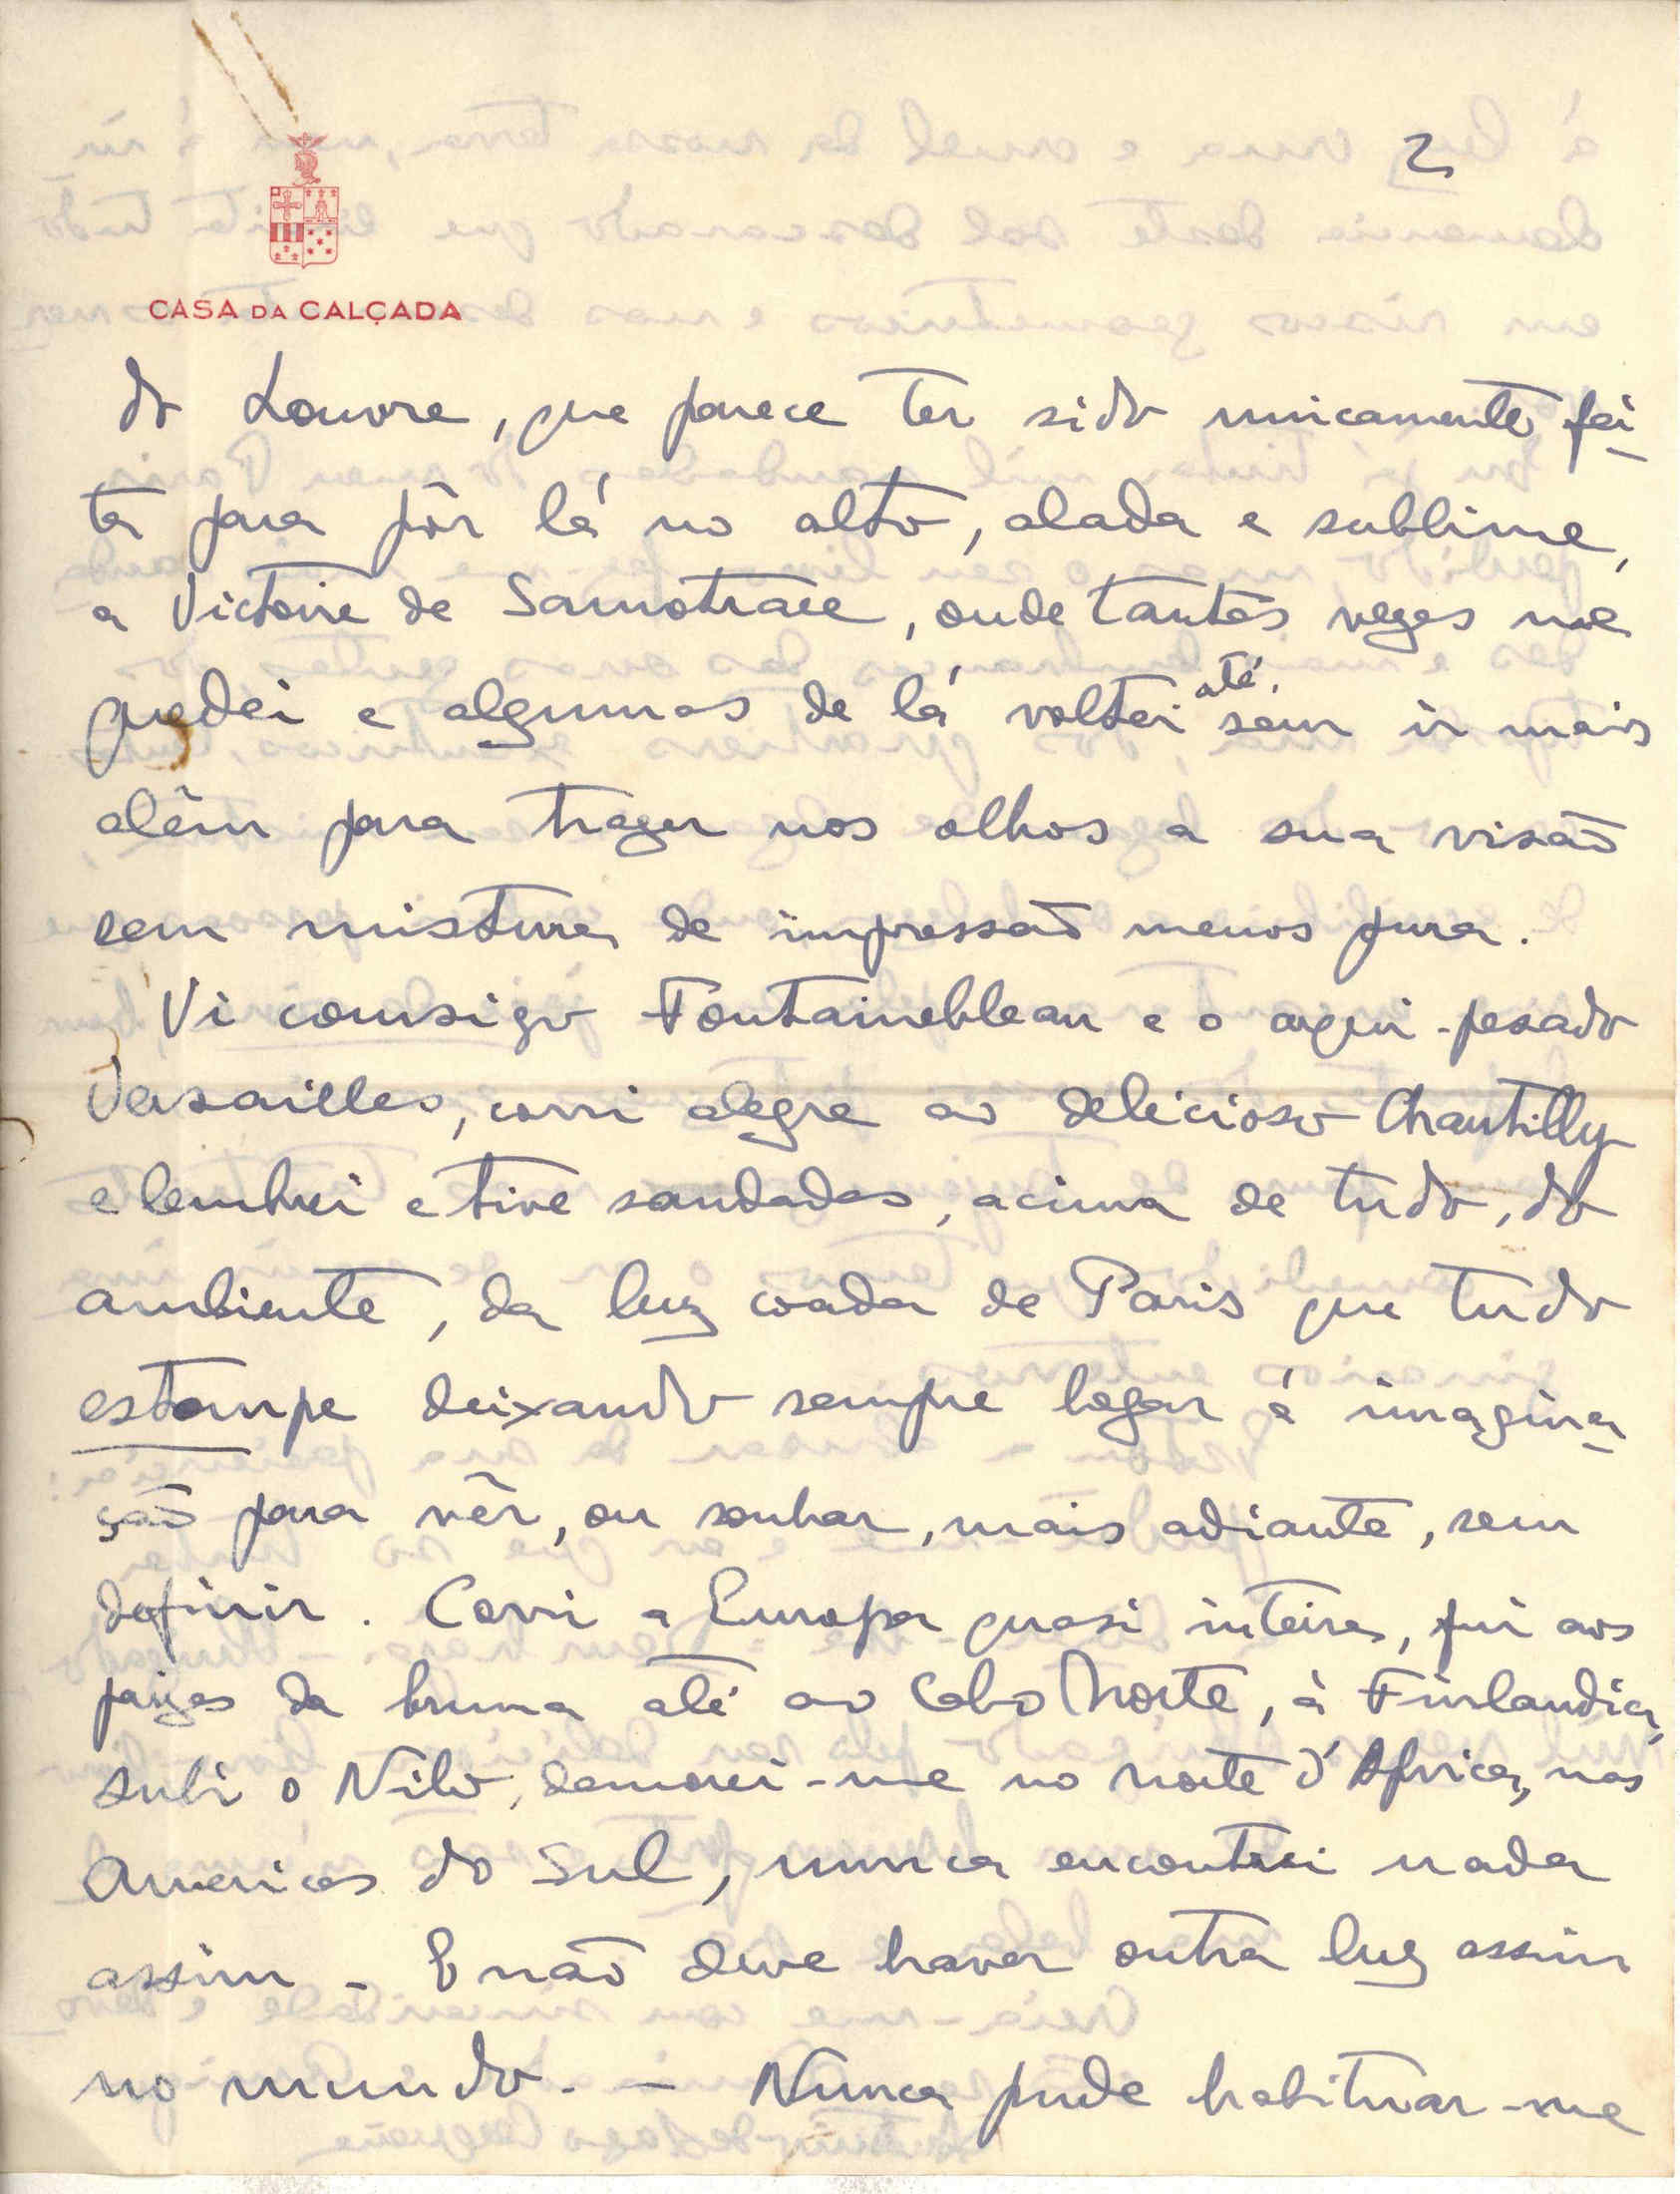 2
CASA DA CALÇADA
do Louvre, que parece ter sido unicamente fei-
ta para pôr lá no alto, alada e sublime,
a Victoire de Samotrace, onde tantas vezes me
quedei e algumas de lá voltei até sem ir mais
alêm para trazer nos olhos a sua visão
sem mistura de impressão menos pura.
Vi comsigo Fontainebleau e o arqui-pesado
Versailles, corri alegre ao delicioso Chantilly
e lembrei e tive saudades, acima de tudo, do
ambiente, da luz coada de Paris que tudo
estompe deixando sempre logar á imagina-
ção para vêr, ou sonhar, mais adiante, sem
definir. Corri a Europa quasi inteira, fui aos
paizes da bruma até ao Cabo Norte, à Finlandia,
subi o Nilo, demorei-me no norte d'Africa, nas
Americas do Sul, nunca encontrei nada
assim - E não deve haver outra luz assim
no mundo. - Nunca pude habituar-me